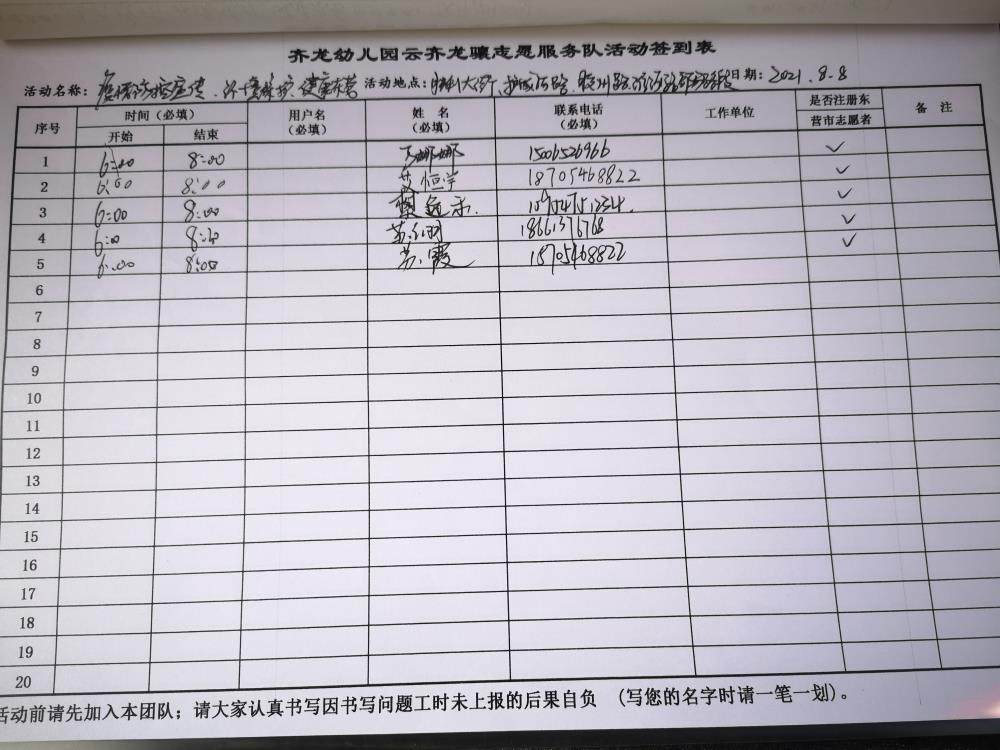 齐龙幼儿园云齐龙骧志愿服务队活动签到表
活动名称：疫情防控宣传、环境保护 健康东营 活动地点： 日期：2021.8.8
序号 时间（必填） 用户名（必填） 姓名（必填） 联系电话（必填） 工作单位 是否注册东营市志愿者 备注
开始 结束
1 6:00 8:00 娜娜 1506526966 ✓
2 6:00 8:00 恒宇 18705468822 ✓
3 6:00 8:00 ✓
4 6:00 8:00 苏 18661376768 ✓
5 6:00 8:00 苏霞 18705468822 ✓
6
7
8
9
10
11
12
13
14
15
16
17
18
19
20
活动前请先加入本团队；请大家认真书写因书写问题工时未上报的后果自负 （写您的名字时请一笔一划）。